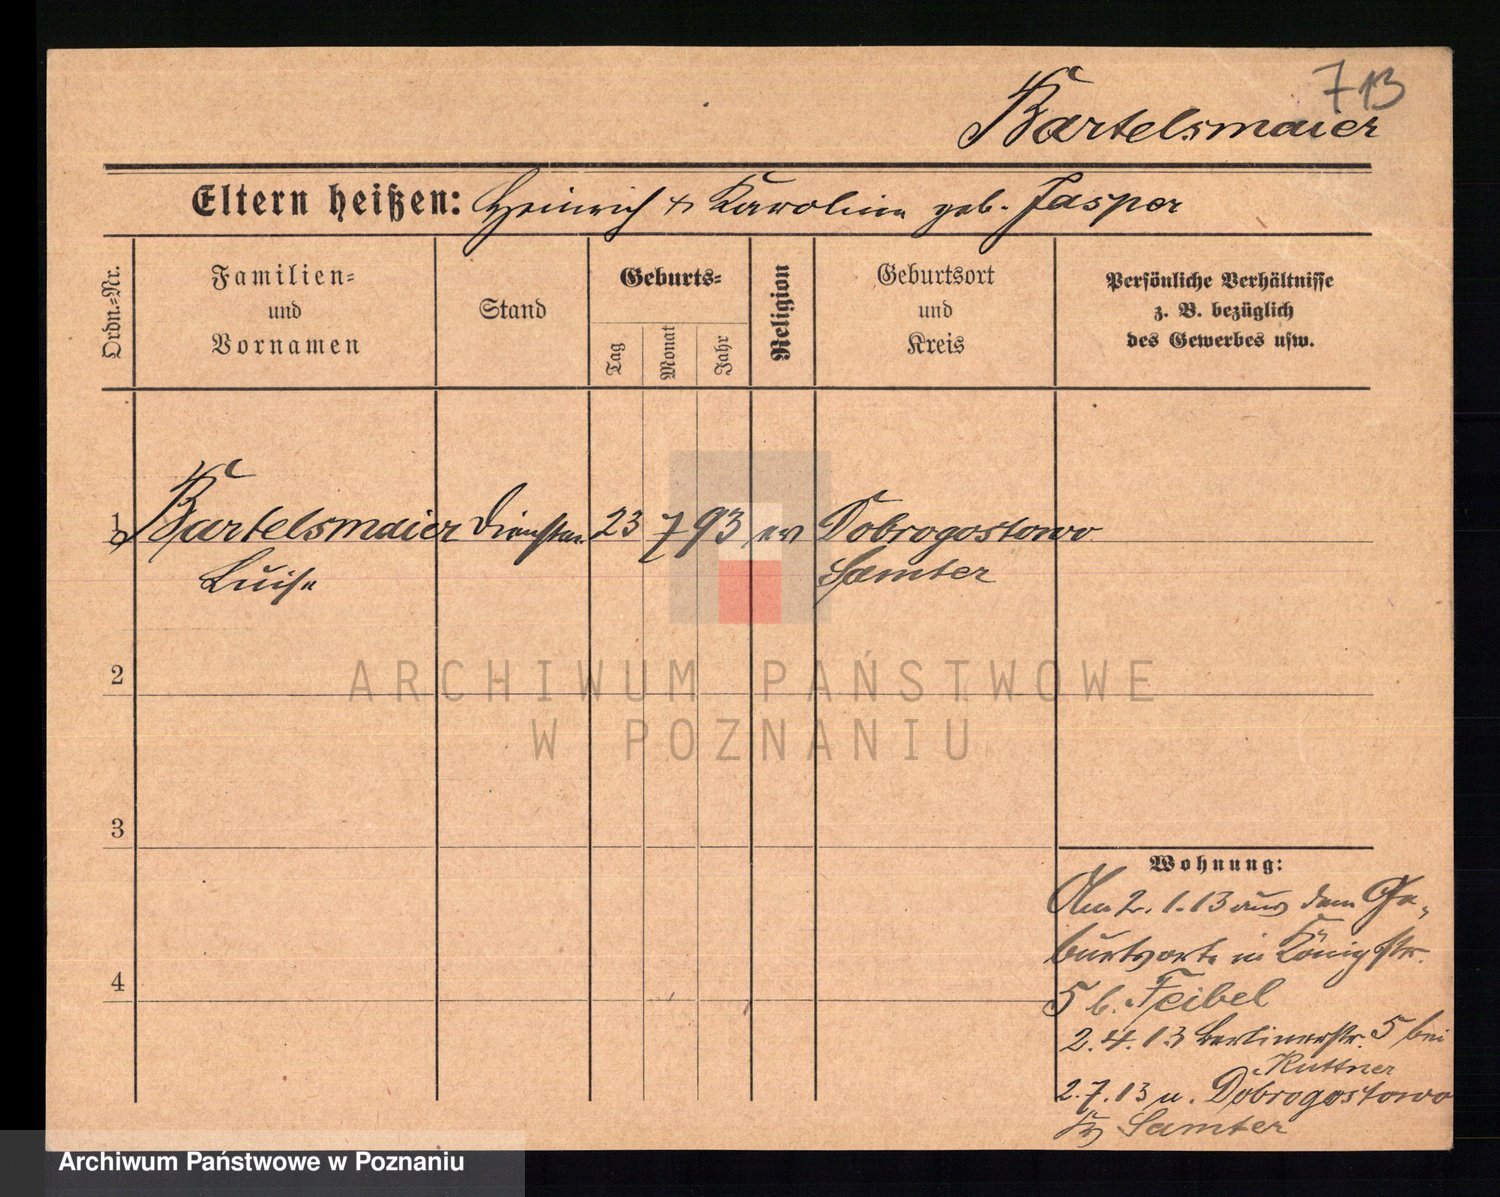 713
Bartelsmaier
Eltern heißen: Heinrich & Karoline geb. Jasper
Ordn.=Nr.
Familien=
und
Vornamen
Stand
Geburts=
Tag
Monat
Jahr
Religion
Geburtsort
und
Kreis
Persönliche Verhältnisse
z. B. bezüglich
des Gewerbes usw.
1 Bartelsmaier Dienstm. 23 7 93 ev Dobrogostowo
Luise Samter
2
3
4
ARCHIWUM PAŃSTWOWE
W POZNANIU
Wohnung:
Am 2.1.13 aus dem Ge-
burtsorte in Königstr.
5 b. Feibel
2.4.13 Berlinerstr. 5 bei
Kuttner
2.7.13 n. Dobrogostowo
Kr Samter
Archiwum Państwowe w Poznaniu